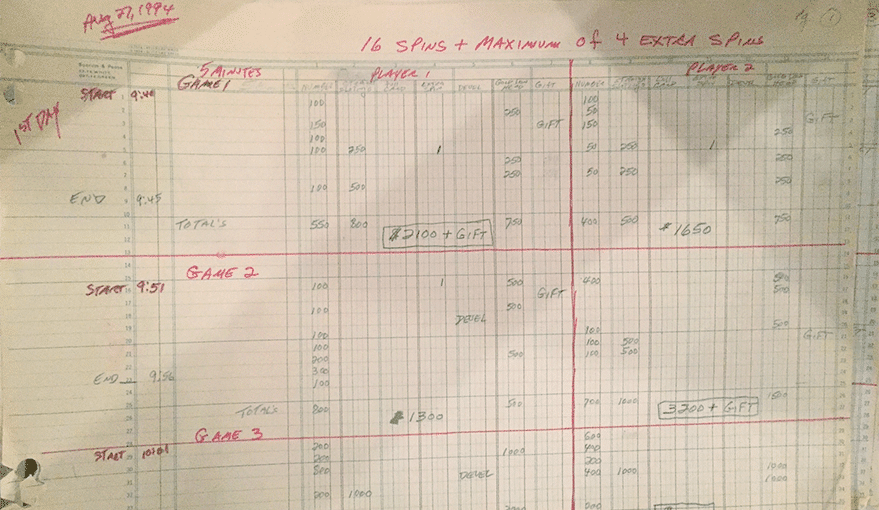 Aug 27, 1994
pg 1
16 SPINS + MAXIMUM of 4 EXTRA SPINS
5 MINUTES PLAYER 1 PLAYER 2
START 9:40 GAME 1 NUMBER DEVEL GIFT NUMBER GIFT
1ST DAY
100 100
250 50
150 GIFT 150 GIFT
100 250
100 250 1 50 250 1
250 250
250 50 250
100 500 250
END 9:45
TOTAL'S 550 800 $2100 + GIFT 750 400 500 $1650 750
GAME 2
START 9:51 1 500 400 500
100 GIFT 500
100 DEVEL 500
500
100 100 GIFT
100 100 500
200 500 100 500
300
END 9:56 100
TOTAL'S 800 $1300 500 700 1000 3200 + GIFT 1500
GAME 3
START 10:01 200 1000 600
200 400
500 DEVEL 200 1000
400 1000 1000
200 1000
200